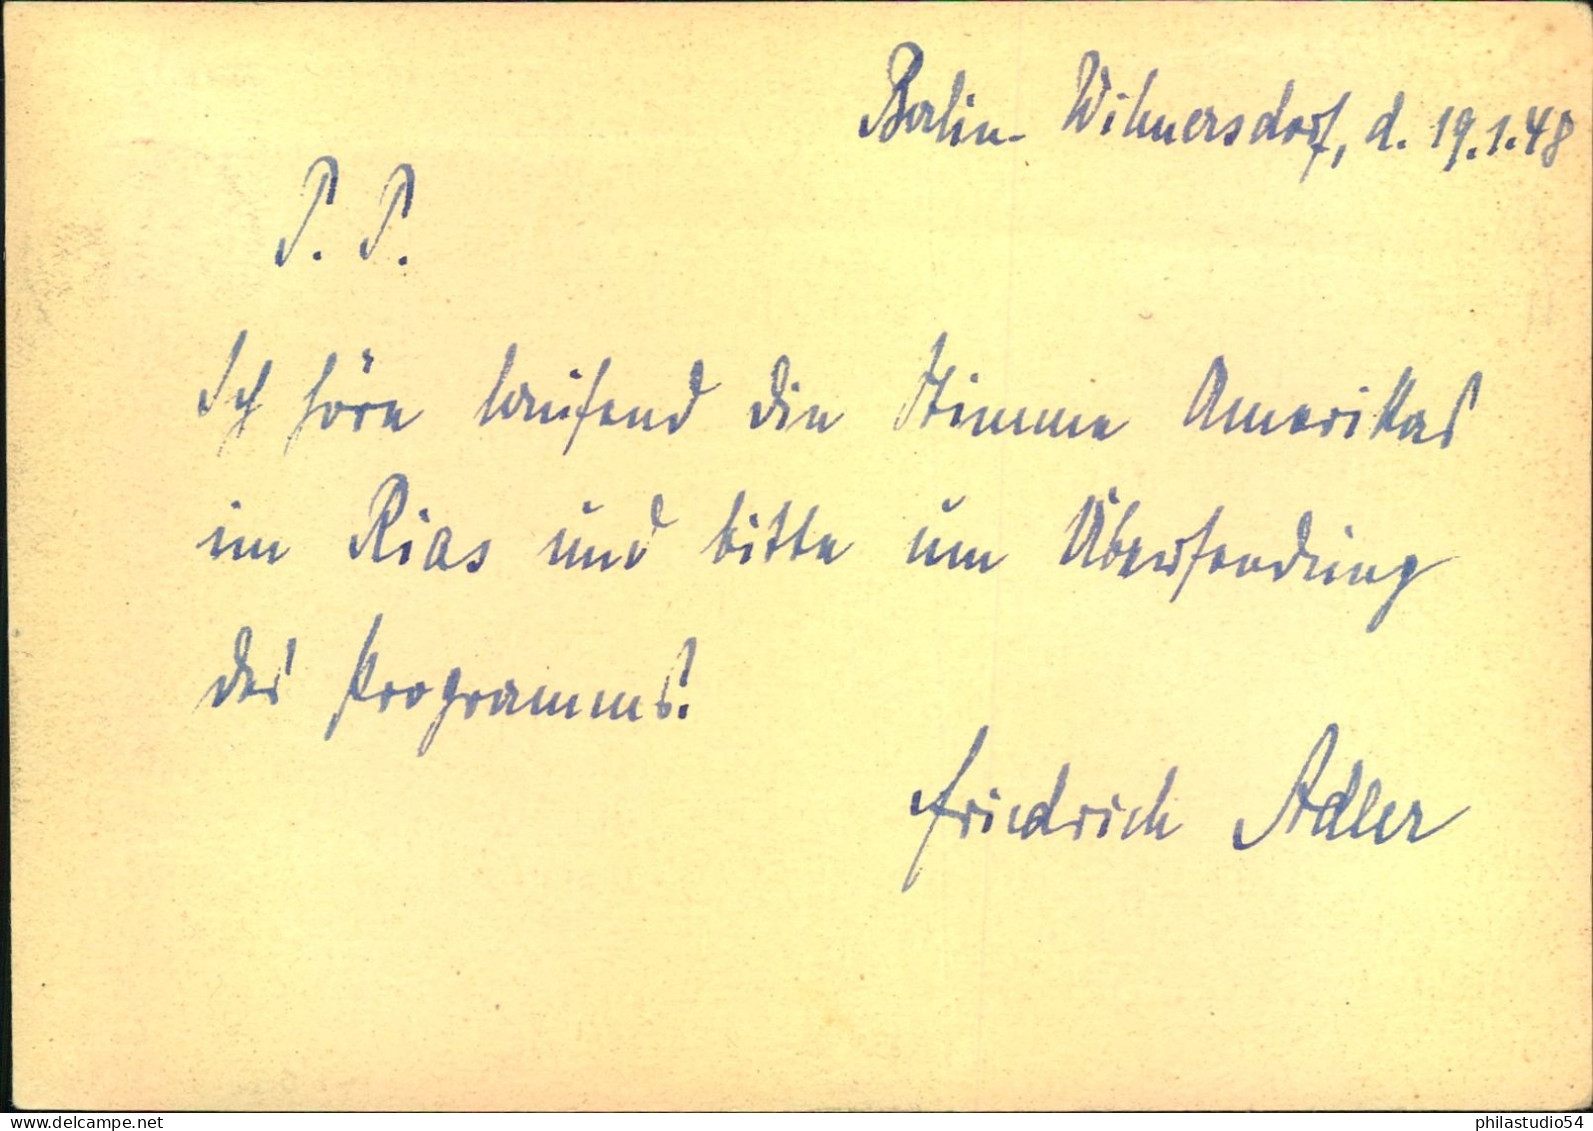 Berlin-Wilmersdorf, d. 19.1.48
P. P.
Ich höre laufend die Stimme Amerikas
im Rias und bitte um Übersendung
des Programms.
Friedrich Adler
www.delcampe.net
philastudio54